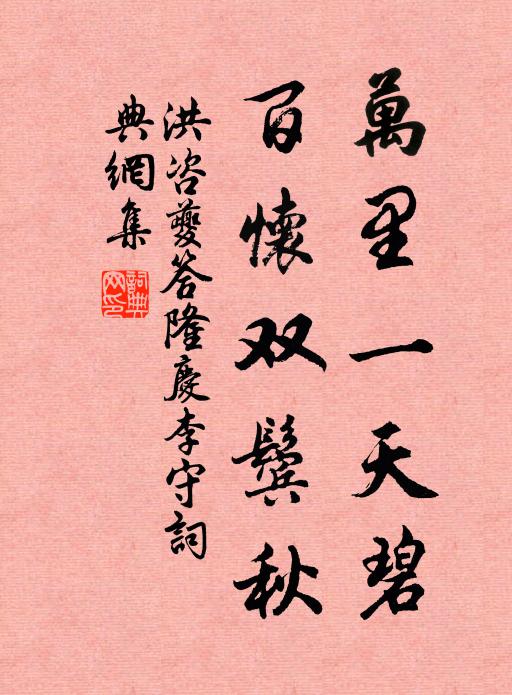 萬里一天碧
百懷双鬢秋
洪咨夔答隆慶李守詞
典網集
詞典网印